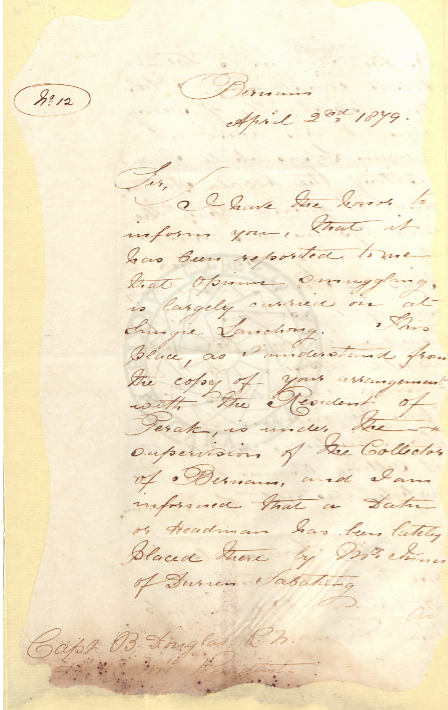 No. 12
Bernam
April 2nd 1879.
Sir,
I have the honor to
inform you, that it
has been reported to me
that opium smuggling,
is largely carried on at
Sungie Lanchong. This
place, as I understand from
the copy of your arrangement
with the Resident of
Perak, is under the
supervision of the Collector
of Bernam, and I am
informed that a Datu
or Headman has been lately
placed there by Mr. Innes
of Durien Sabatang
Capt. B. Douglas R. N.
Resident